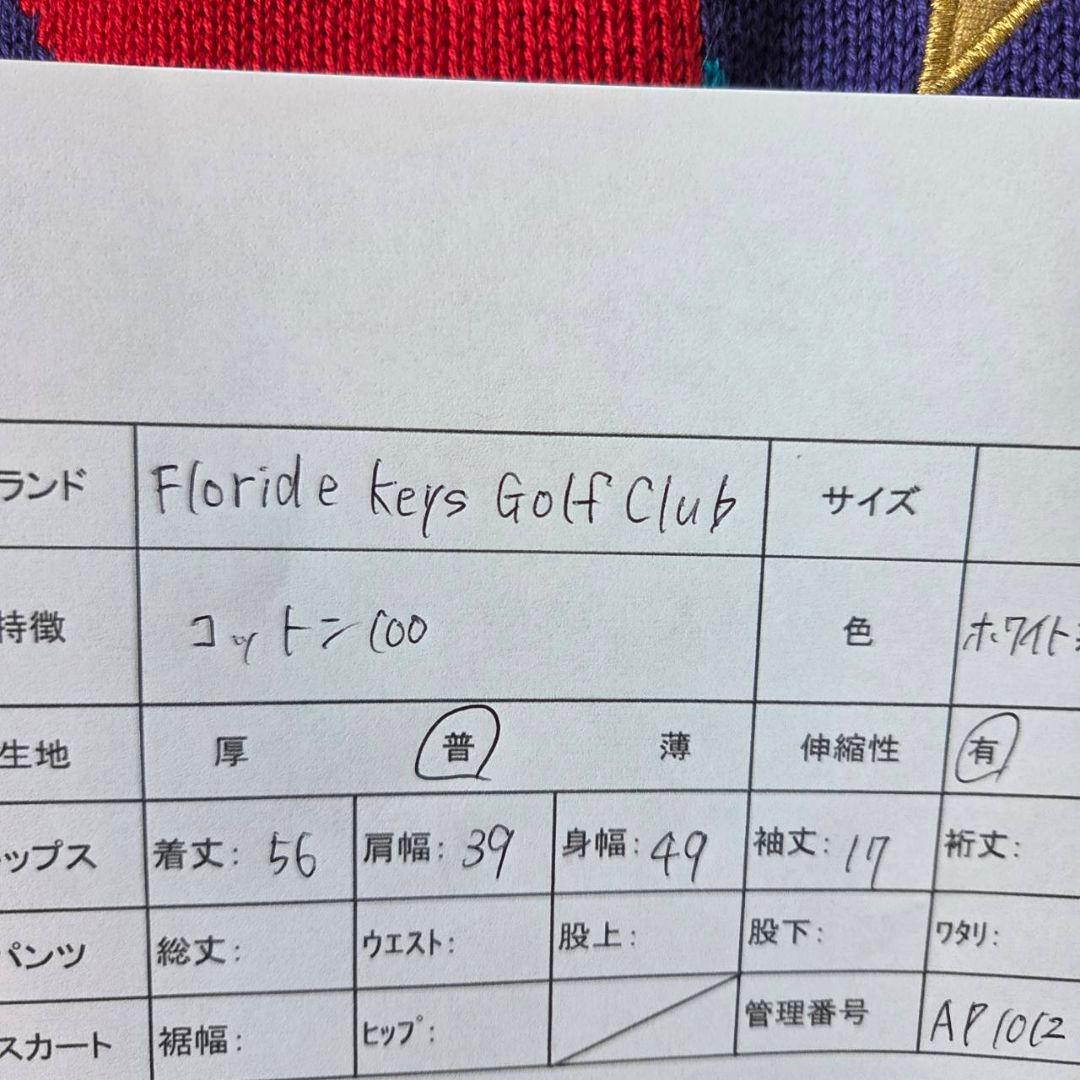 ランド Floride Keys Golf Club サイズ
特徴 コットン100 色 ホワイト
生地 厚 普 薄 伸縮性 有
ップス 着丈: 56 肩幅: 39 身幅: 49 袖丈: 17 裄丈:
パンツ 総丈: ウエスト: 股上: 股下: ワタリ:
スカート 裾幅: ヒップ: 管理番号 AP1012